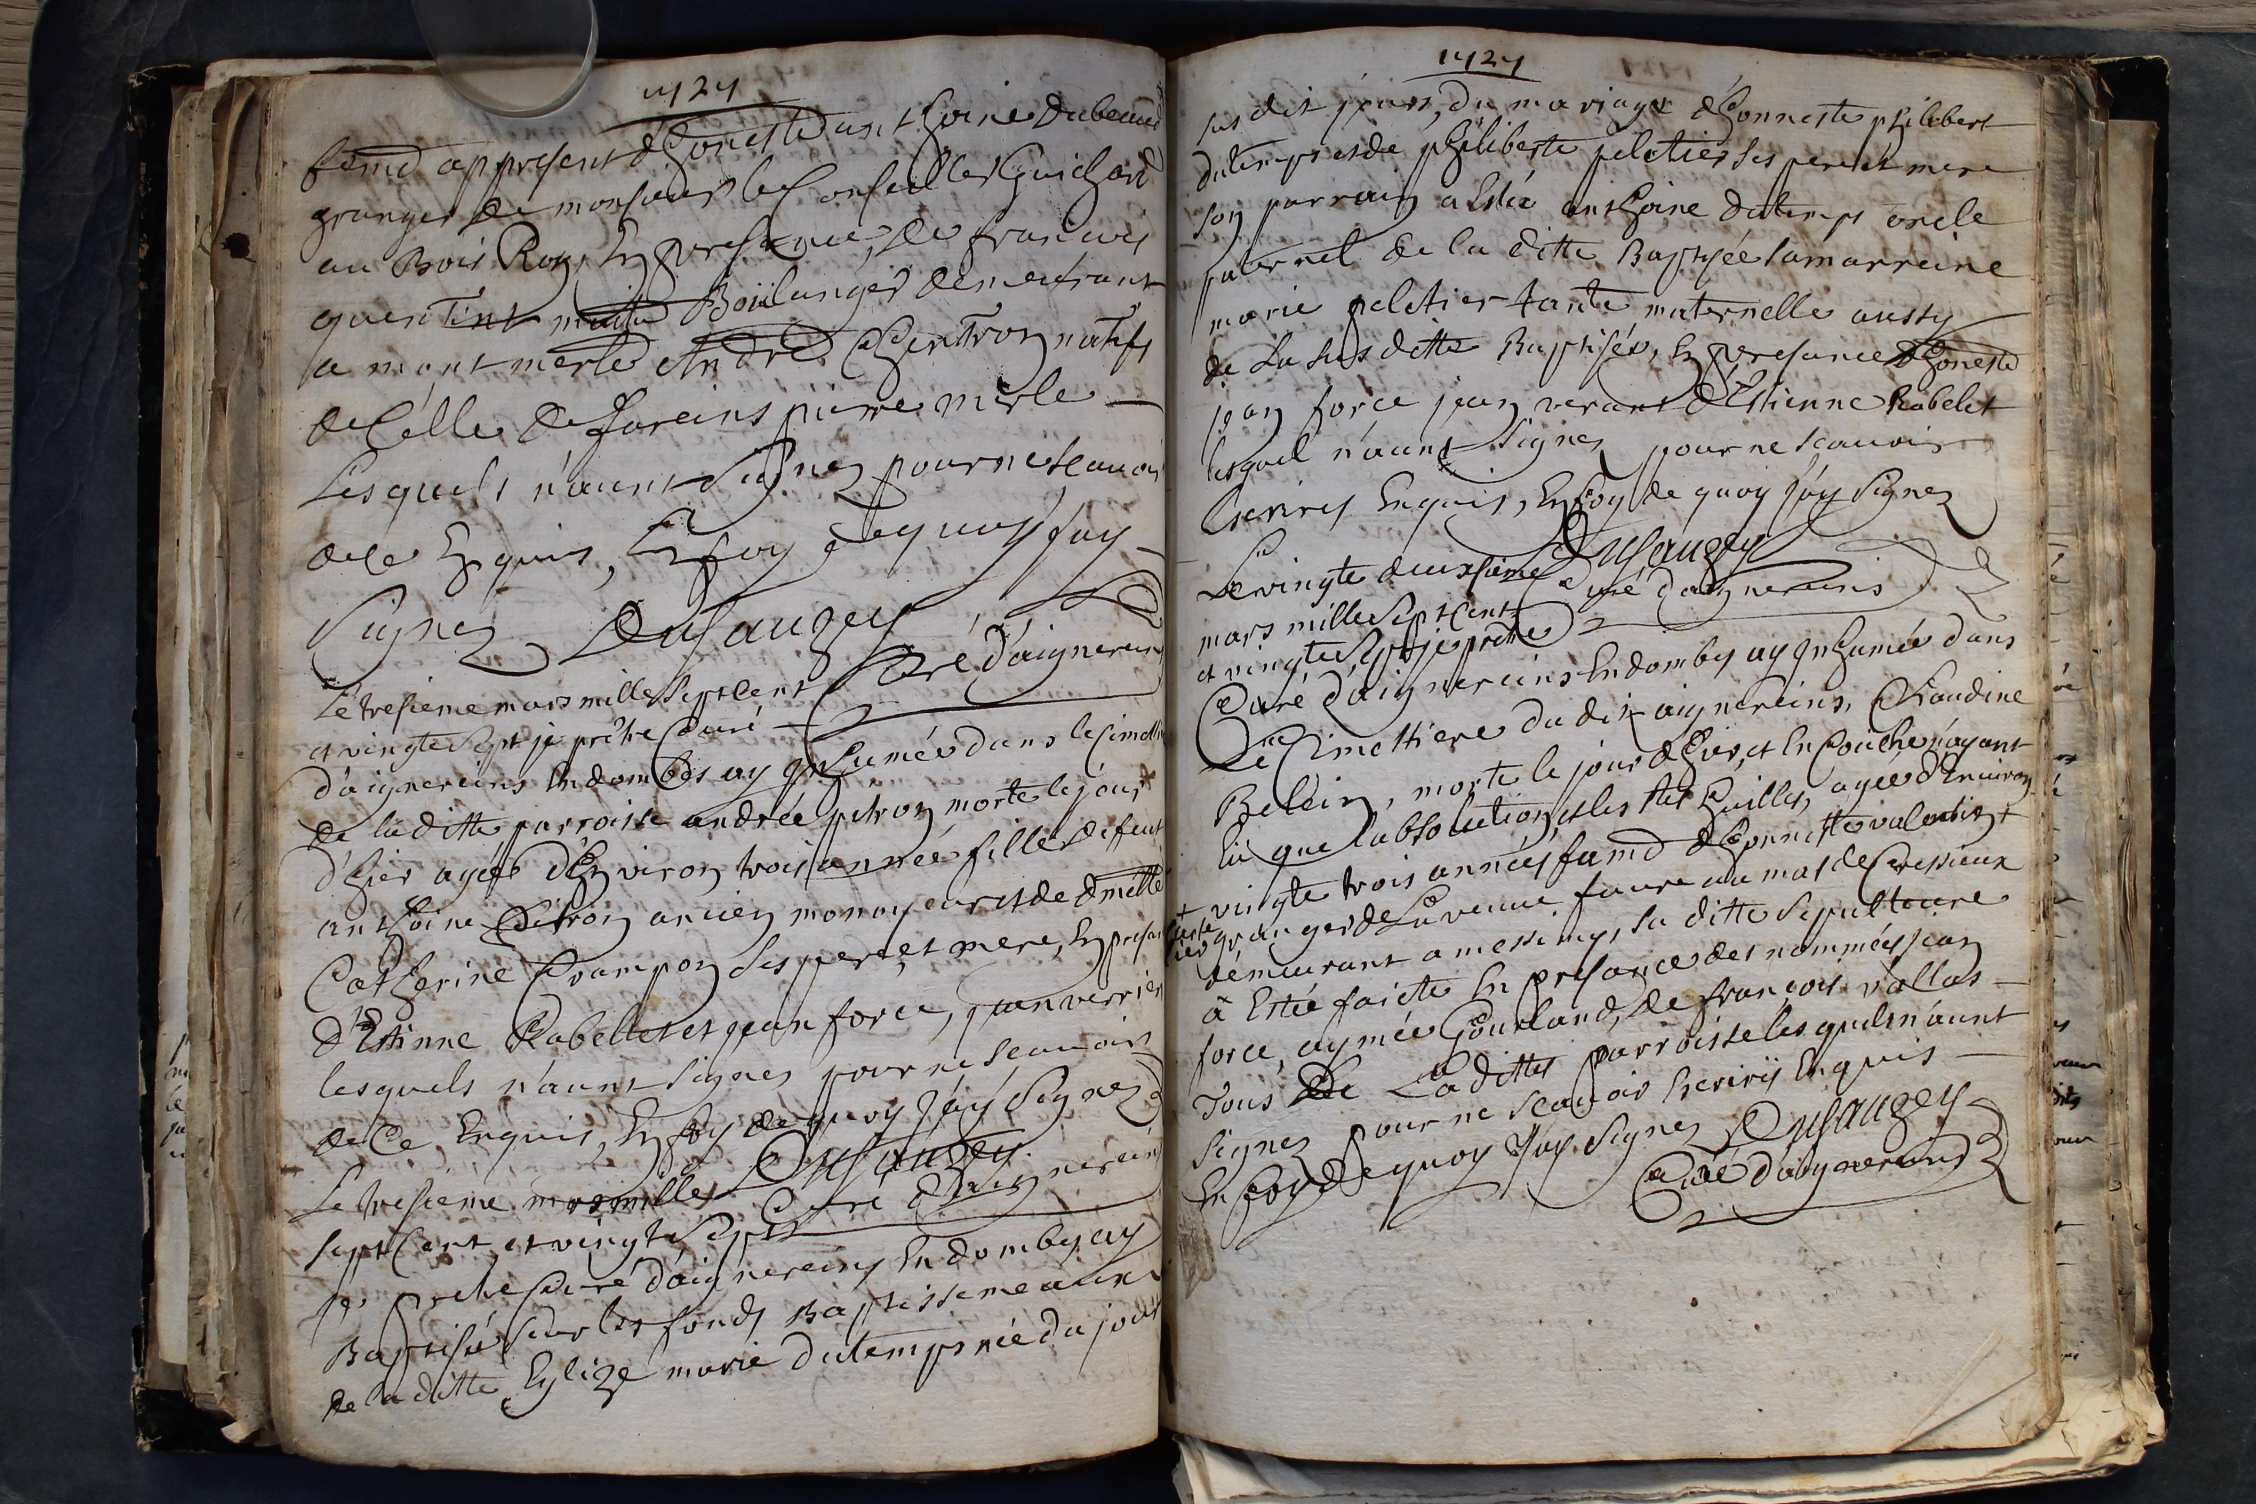 1727
femd appresent d'honeste anthoine dubecue
granger de monsieur le Conseiller Guichard
au Bois Roy, En presence, de francois
quentint maitre Boulanger demeurant
a montmerle Andre Chentron natifs
de Celle de fareins pierre merle
Lesquels n'aunt Signez pour ne scauoir
de ce Enquis, En foy de quoy j'ay
Signez DuSauzey
Curé d'aignereins
Le tresieme mars mille Sept Cent
et vingte Sept je prêtre Curé
d'aignereins En dombes ay Inhumée dans le Cimettiere
de la ditte parroisse andrée petron morte le jour
d'hier agée d'Environ trois année fille defeut
anthoine Petron ancien monoyeur et de dmelle
Catherine Crampon ses pere et mere, En presance
d'Estienne Rabelet et jean force, jean verrier
lesquels n'aunt signez pour ne scauoir
de Ce Enquis, En foy de quoy J'ay Signez
DuSauzey
Curé d'aignereins
Le tresieme mars mille
Sept Cent et vingte Sept
je pretre Curé d'aignereins En dombes ay
Baptisée sur les fonds Baptissemeaux
de la ditte Eglize marie dutemps née du jour
1727
sus dit jours, du mariage d'honneste philibert
dutemps et de philiberte peletier ses pere et mere
son parrain a Estée anthoine dutemps oncle
paternel de la ditte Baptisée sa marreine
marie peletier tante maternelle aussy
de La sus ditte Baptisée, En presance d'honeste
jean force jean verant d'Estienne Rabelet
lesquel n'aunt signez pour ne scauoir
Escrires Enquis, En foy de quoy j'ay Signez
DuSauzey
Curé d'aignereins
Le vingte deuxsieme
mars mille Sept Cent
et vingte Sept je prêtre
Curé d'aignereins En dombes ay Inhumée dans
Le Cimettiere du dit aignereins, Claudine
Belein, morte le jour d'hier, et En Couche n'ayant
Eü que l'absolution, et les stes huilles, agée d'Enuiron
vingte trois années famd d'honnette valentin +
+
granger de La veuue faure au mas de Cressieux
demeurant a messimy, sa ditte Sepulteure
à Estée faicte En presance des nommées jean
force, aymée Gourland, de francois vallas
Tous De La ditte parroisse les quels n'aunt
Signez pour ne scauoir Escrire Enquis
En foy de quoy J'ay Signez DuSauzey
Curé d'aignereins